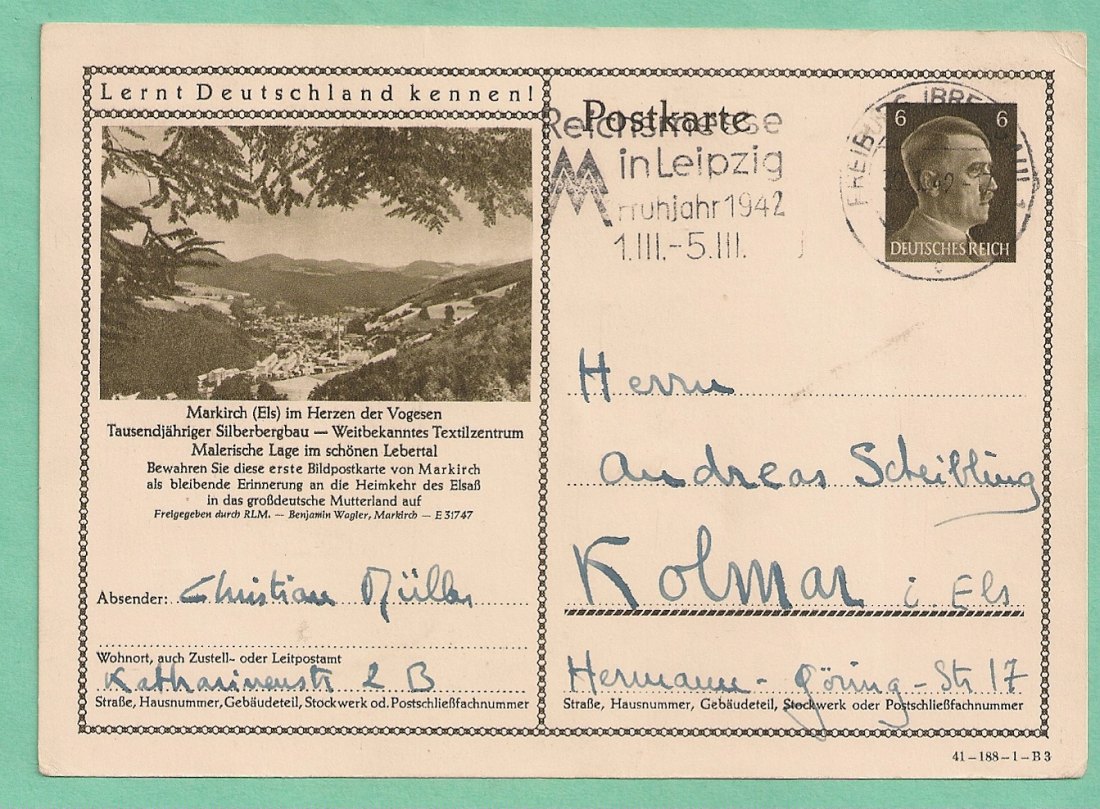 Lernt Deutschland kennen!
Markirch (Els) im Herzen der Vogesen
Tausendjähriger Silberbergbau — Weitbekanntes Textilzentrum
Malerische Lage im schönen Lebertal
Bewahren Sie diese erste Bildpostkarte von Markirch
als bleibende Erinnerung an die Heimkehr des Elsaß
in das großdeutsche Mutterland auf
Freigegeben durch RLM. — Benjamin Wagler, Markirch — E 31747
Absender: Christian Müller
Wohnort, auch Zustell- oder Leitpostamt
Katharinenstr 2 B
Straße, Hausnummer, Gebäudeteil, Stockwerk od. Postschließfachnummer
Postkarte
Reichsmesse
in Leipzig
Fruhjahr 1942
1.III.-5.III.
FREIBURG (BREISGAU) 1
6 6
DEUTSCHES REICH
Herrn
Andreas Scheibling
Kolmar i. Els
Hermann-Göring-Str 17
Straße, Hausnummer, Gebäudeteil, Stockwerk oder Postschließfachnummer
41-188-1-B 3